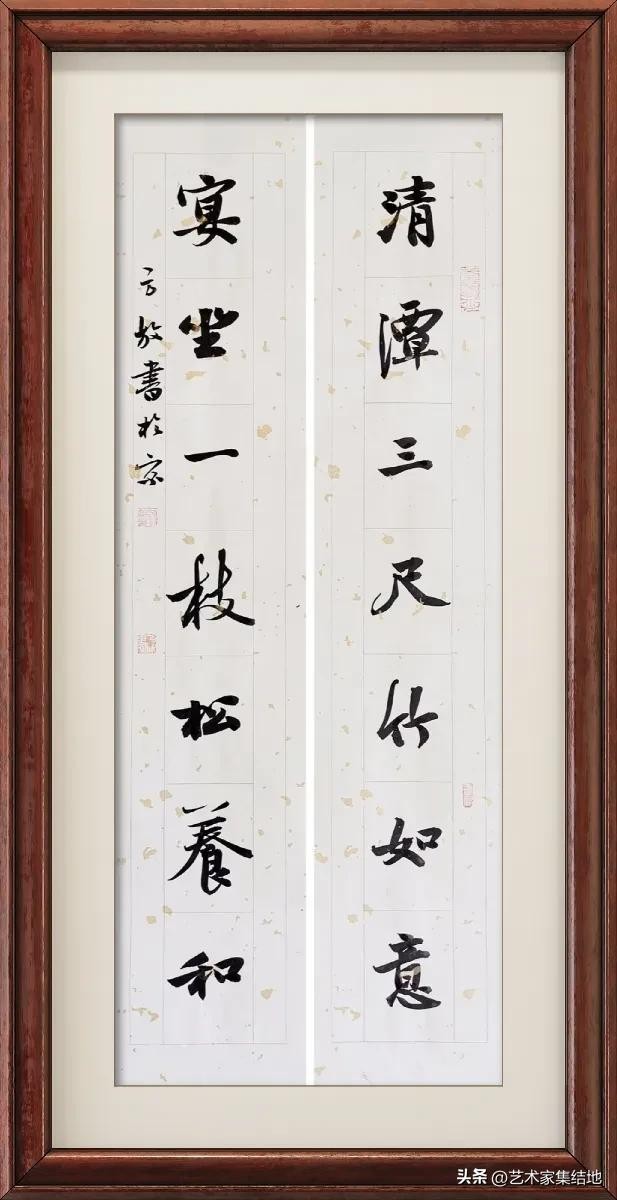 清潭三尺竹如意
宴坐一枝松養和
方放書於京
头条 @艺术家集结地